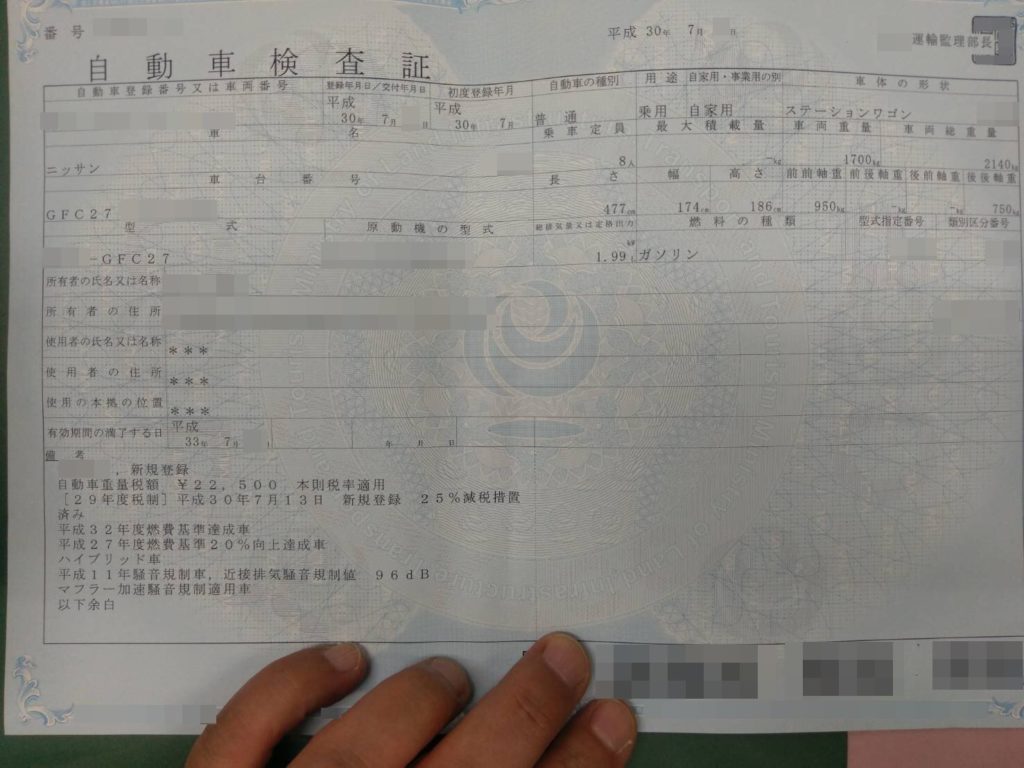 番号
平成 30年 7月 日
運輸監理部長
自動車検査証
自動車登録番号又は車両番号 登録年月日/交付年月日 初度登録年月 自動車の種別 用途 自家用・事業用の別 車体の形状
平成 30年 7月 日 平成 30年 7月 普通 乗用 自家用 ステーションワゴン
車名 乗車定員 最大積載量 車両重量 車両総重量
ニッサン 8人 -kg 1700kg 2140kg
車台番号 長さ 幅 高さ 前前軸重 前後軸重 後前軸重 後後軸重
GFC27 477cm 174cm 186cm 950kg -kg -kg 750kg
型式 原動機の型式 総排気量又は定格出力 燃料の種類 型式指定番号 類別区分番号
-GFC27 kW 1.99L ガソリン
所有者の氏名又は名称
所有者の住所
使用者の氏名又は名称 ***
使用者の住所 ***
使用の本拠の位置 ***
有効期間の満了する日 平成 33年 7月 年 月 日
備考
,新規登録
自動車重量税額 ¥22,500 本則税率適用
[29年度税制]平成30年7月13日 新規登録 25%減税措置
済み
平成32年度燃費基準達成車
平成27年度燃費基準20%向上達成車
ハイブリッド車
平成11年騒音規制車,近接排気騒音規制値 96dB
マフラー加速騒音規制適用車
以下余白